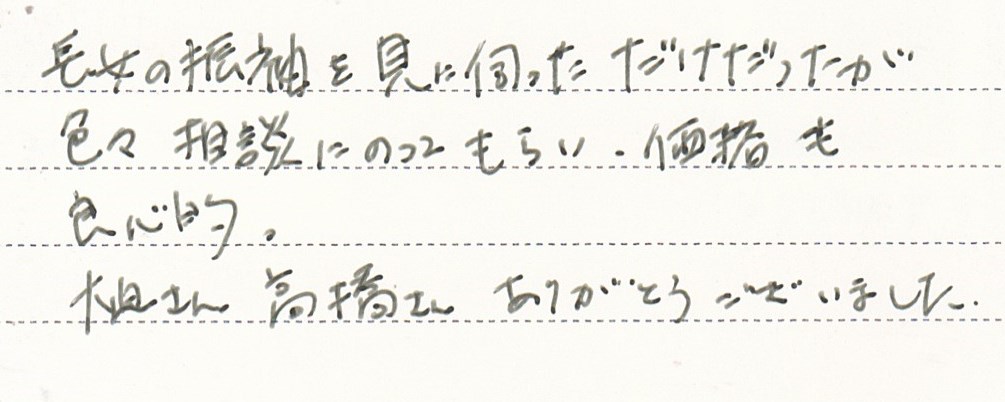 長女の振袖を見に伺っただけだったが
色々相談にのってもらい、価格も
良心的。
さん 高橋さん ありがとうございました.